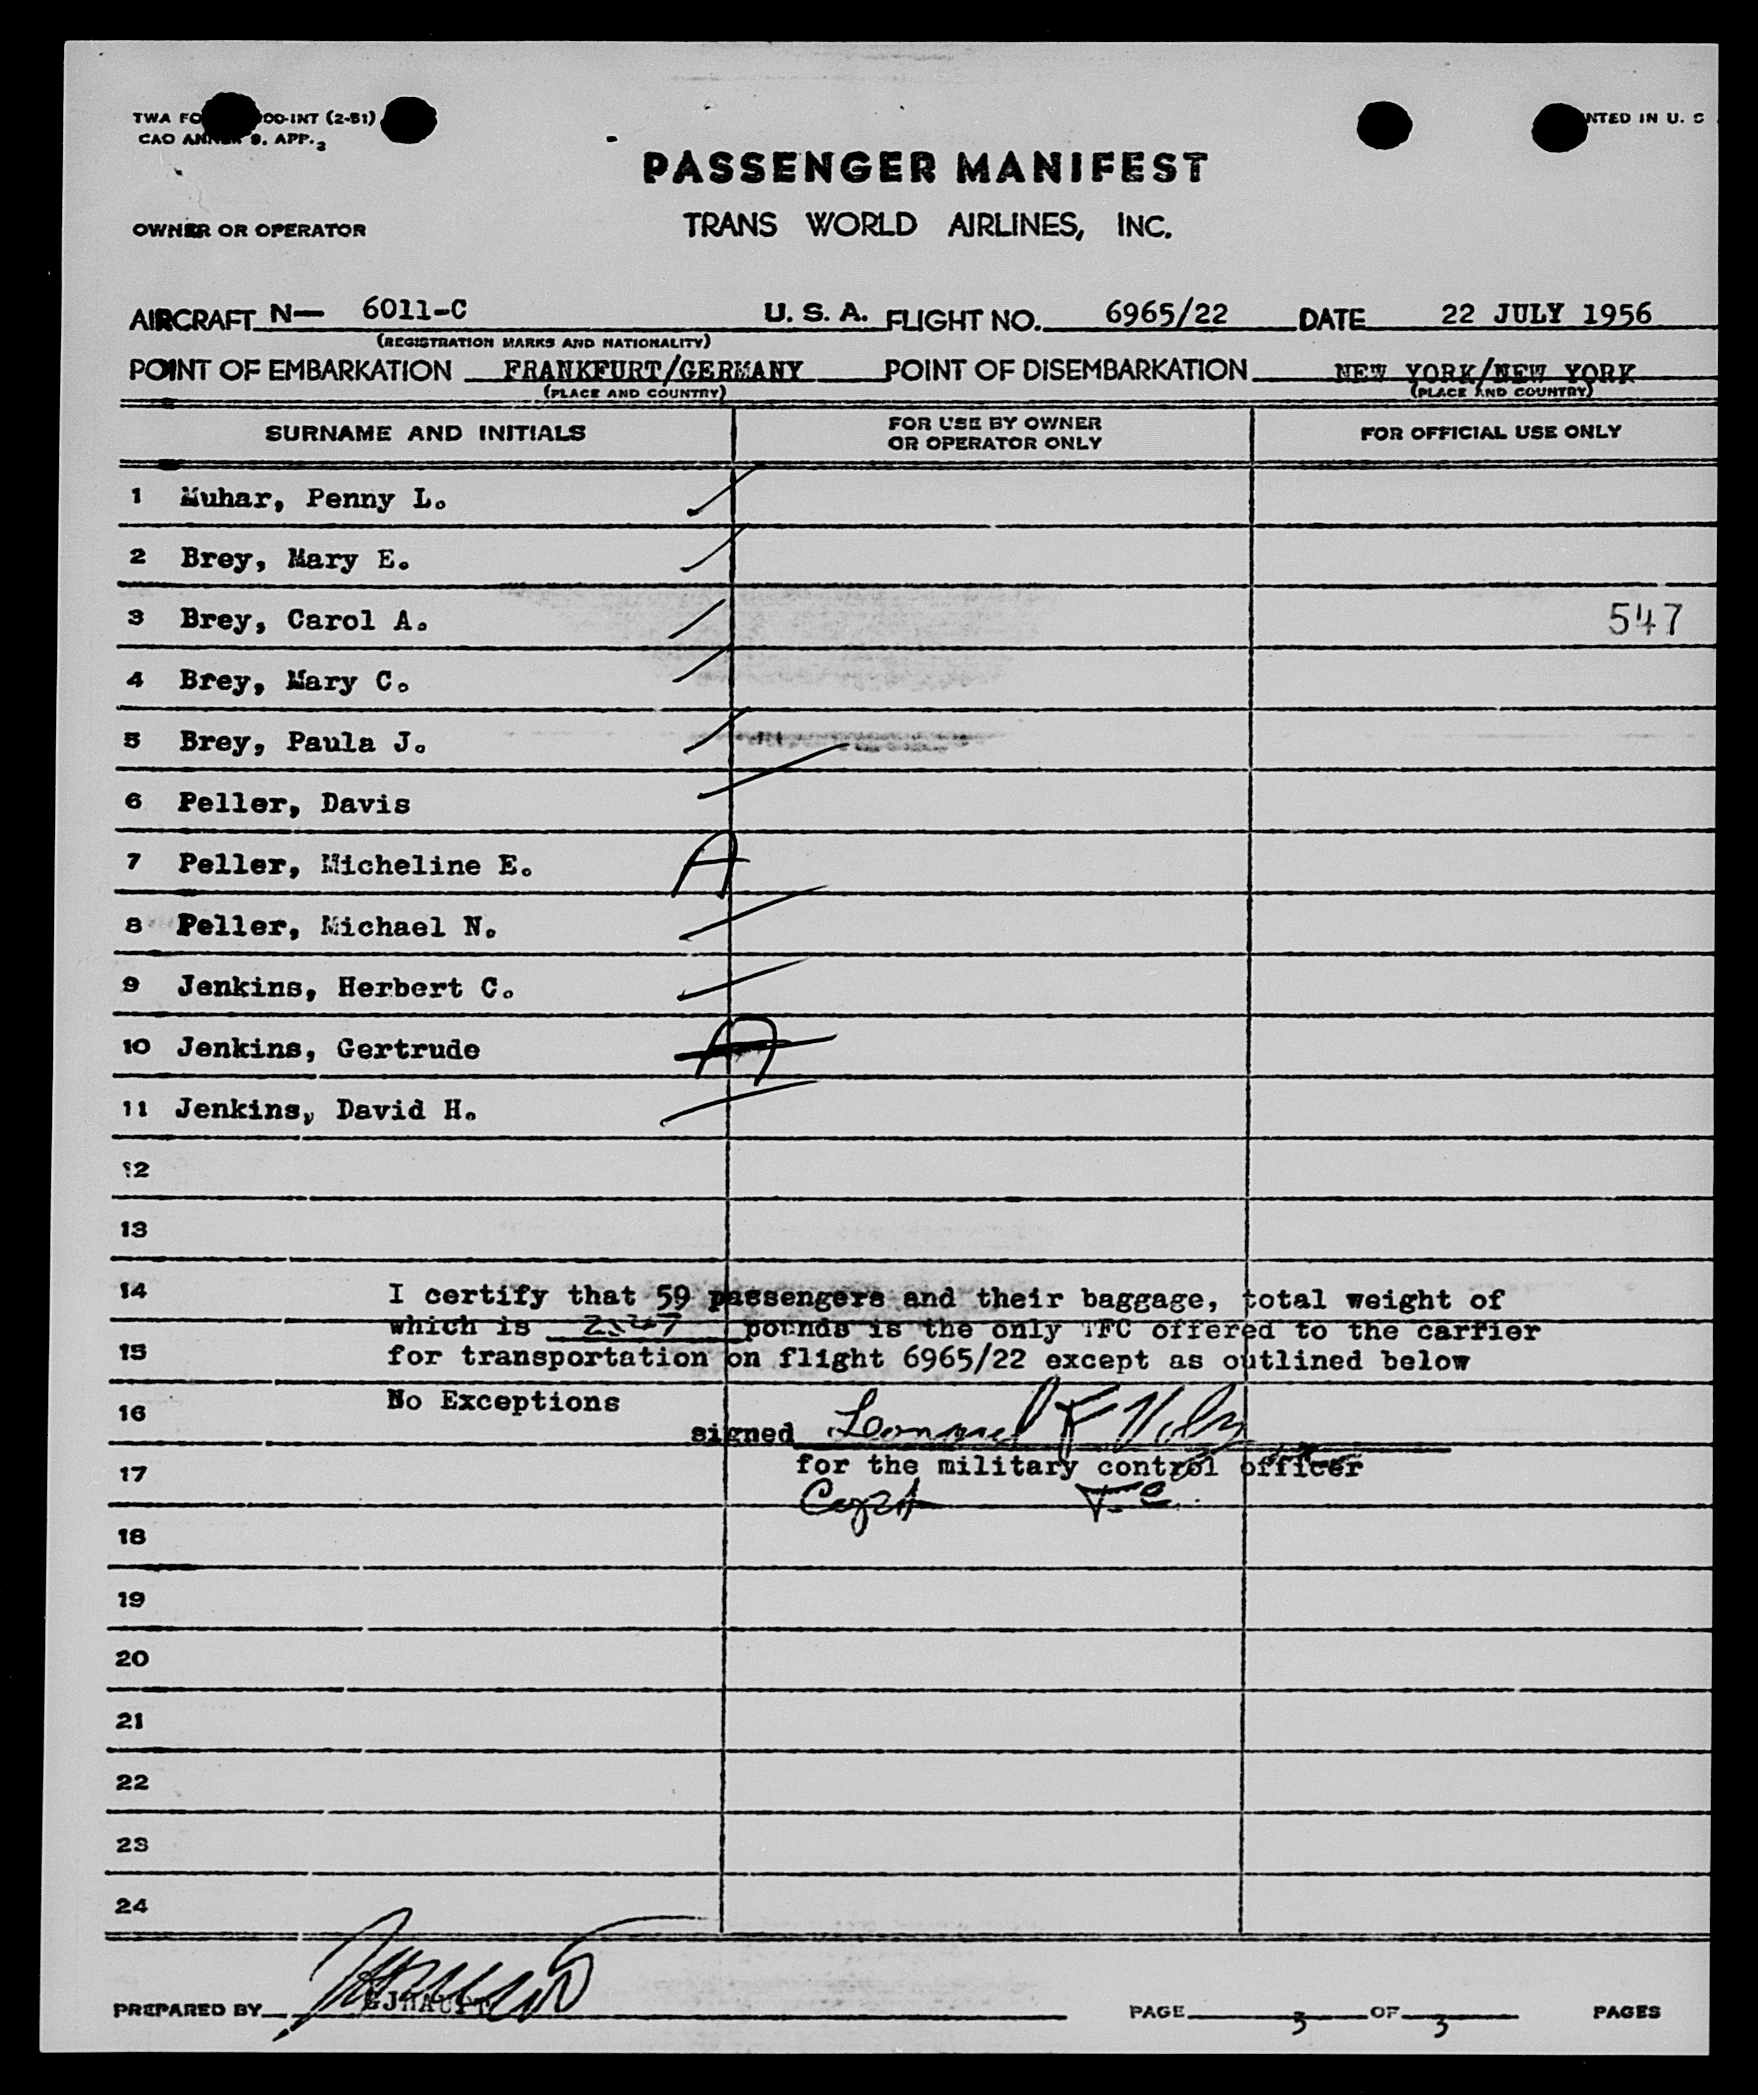 TWA FO OO-INT (2-51)
CAO ANNEX 9. APP. 2
NTED IN U. S
PASSENGER MANIFEST
OWNER OR OPERATOR
TRANS WORLD AIRLINES, INC.
AIRCRAFT N— 6011-C U. S. A. FLIGHT NO. 6965/22 DATE 22 JULY 1956
(REGISTRATION MARKS AND NATIONALITY)
POINT OF EMBARKATION FRANKFURT/GERMANY POINT OF DISEMBARKATION NEW YORK/NEW YORK
(PLACE AND COUNTRY) (PLACE AND COUNTRY)
SURNAME AND INITIALS FOR USE BY OWNER OR OPERATOR ONLY FOR OFFICIAL USE ONLY
1 Muhar, Penny L.
2 Brey, Mary E.
3 Brey, Carol A. 547
4 Brey, Mary C.
5 Brey, Paula J.
6 Peller, Davis
7 Peller, Micheline E. A
8 Peller, Michael N.
9 Jenkins, Herbert C.
10 Jenkins, Gertrude A
11 Jenkins, David H.
12
13
14 I certify that 59 passengers and their baggage, total weight of
which is 2547 pounds is the only TFC offered to the carrier
15 for transportation on flight 6965/22 except as outlined below
No Exceptions
16 signed
17 for the military control officer
Capt T.C.
18
19
20
21
22
23
24
PREPARED BY PAGE 3 OF 3 PAGES